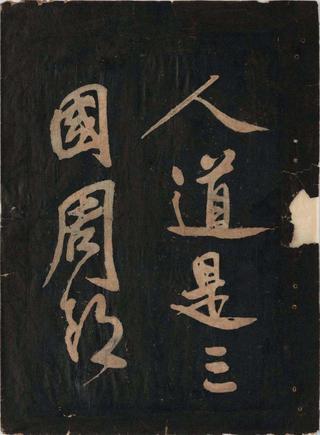 人道是三
國周郎